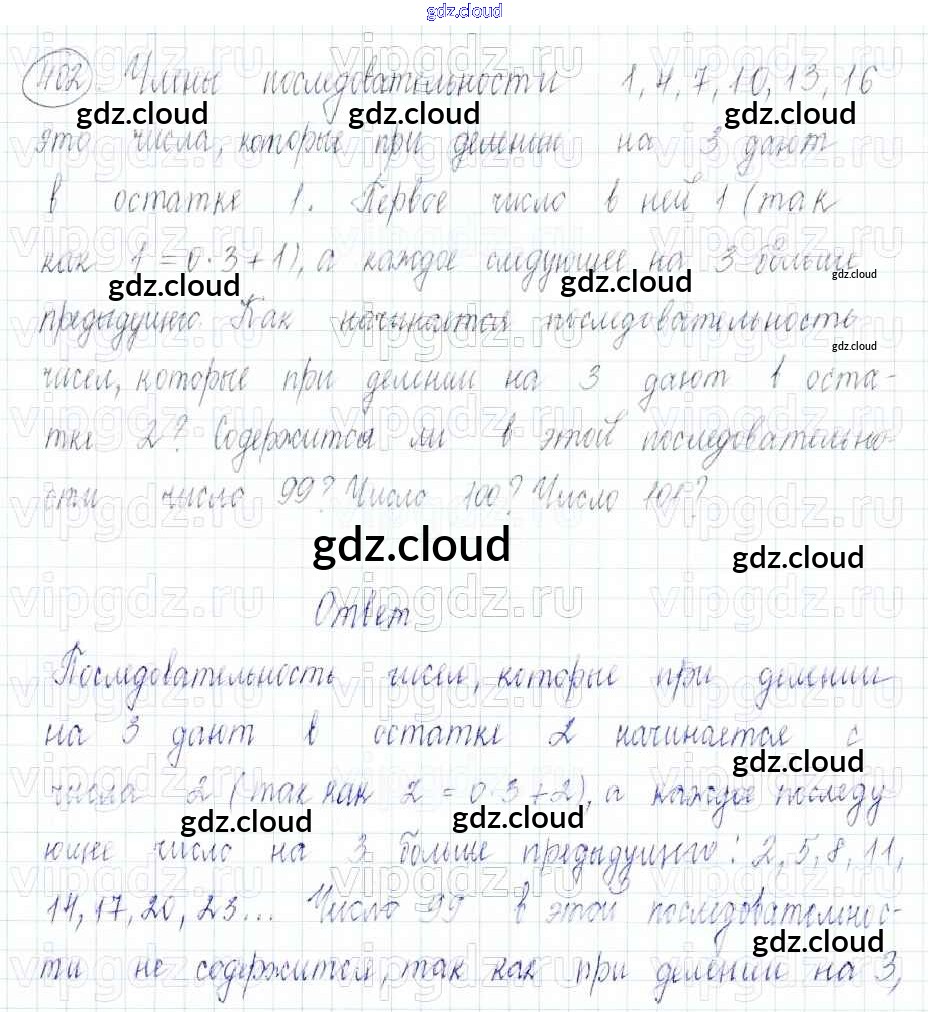 gdz.cloud
402 Члены последовательности 1, 4, 7, 10, 13, 16
gdz.cloud gdz.cloud gdz.cloud
это числа, которые при делении на 3 дают
в остатке 1. Первое число в ней 1 (так
как 1 = 0·3+1), а каждое следующее на 3 больше
gdz.cloud gdz.cloud gdz.cloud
предыдущего. Как начинается последовательность
gdz.cloud
чисел, которые при делении на 3 дают в оста-
тке 2? Содержится ли в этой последовательно-
сти число 99? Число 100? Число 101?
gdz.cloud gdz.cloud
Ответ
Последовательность чисел, которые при делении
на 3 дают в остатке 2 начинается с
gdz.cloud
числа 2 (так как 2 = 0·3+2), а каждое последу
gdz.cloud gdz.cloud
ющее число на 3 больше предыдущего: 2, 5, 8, 11,
14, 17, 20, 23... Число 99 в этой последовательнос-
gdz.cloud
ти не содержится, так как при делении на 3,